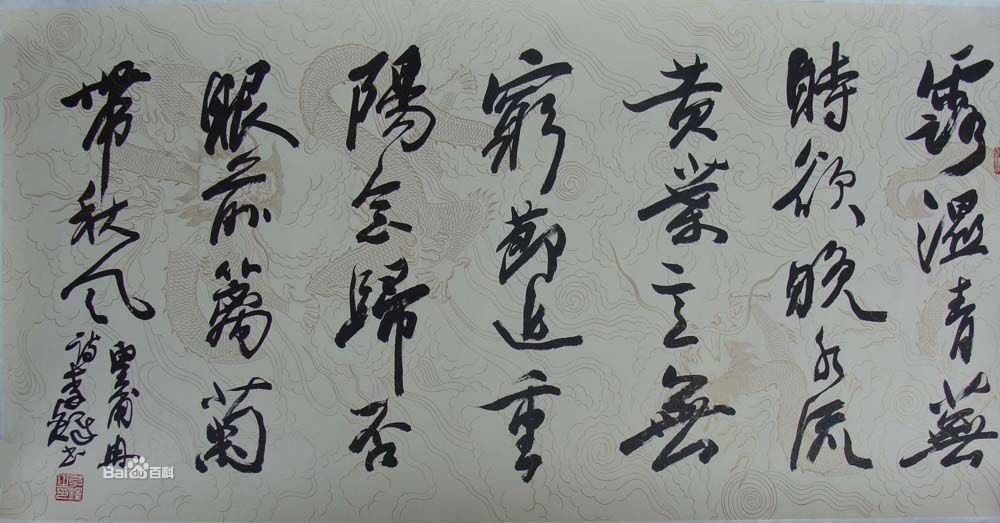 露濕青蕪
時欲晚水流
黄葉意無
窮節近重
陽念歸否
眼前籬菊
帶秋風
皇甫冉
詩李書
Bai百科